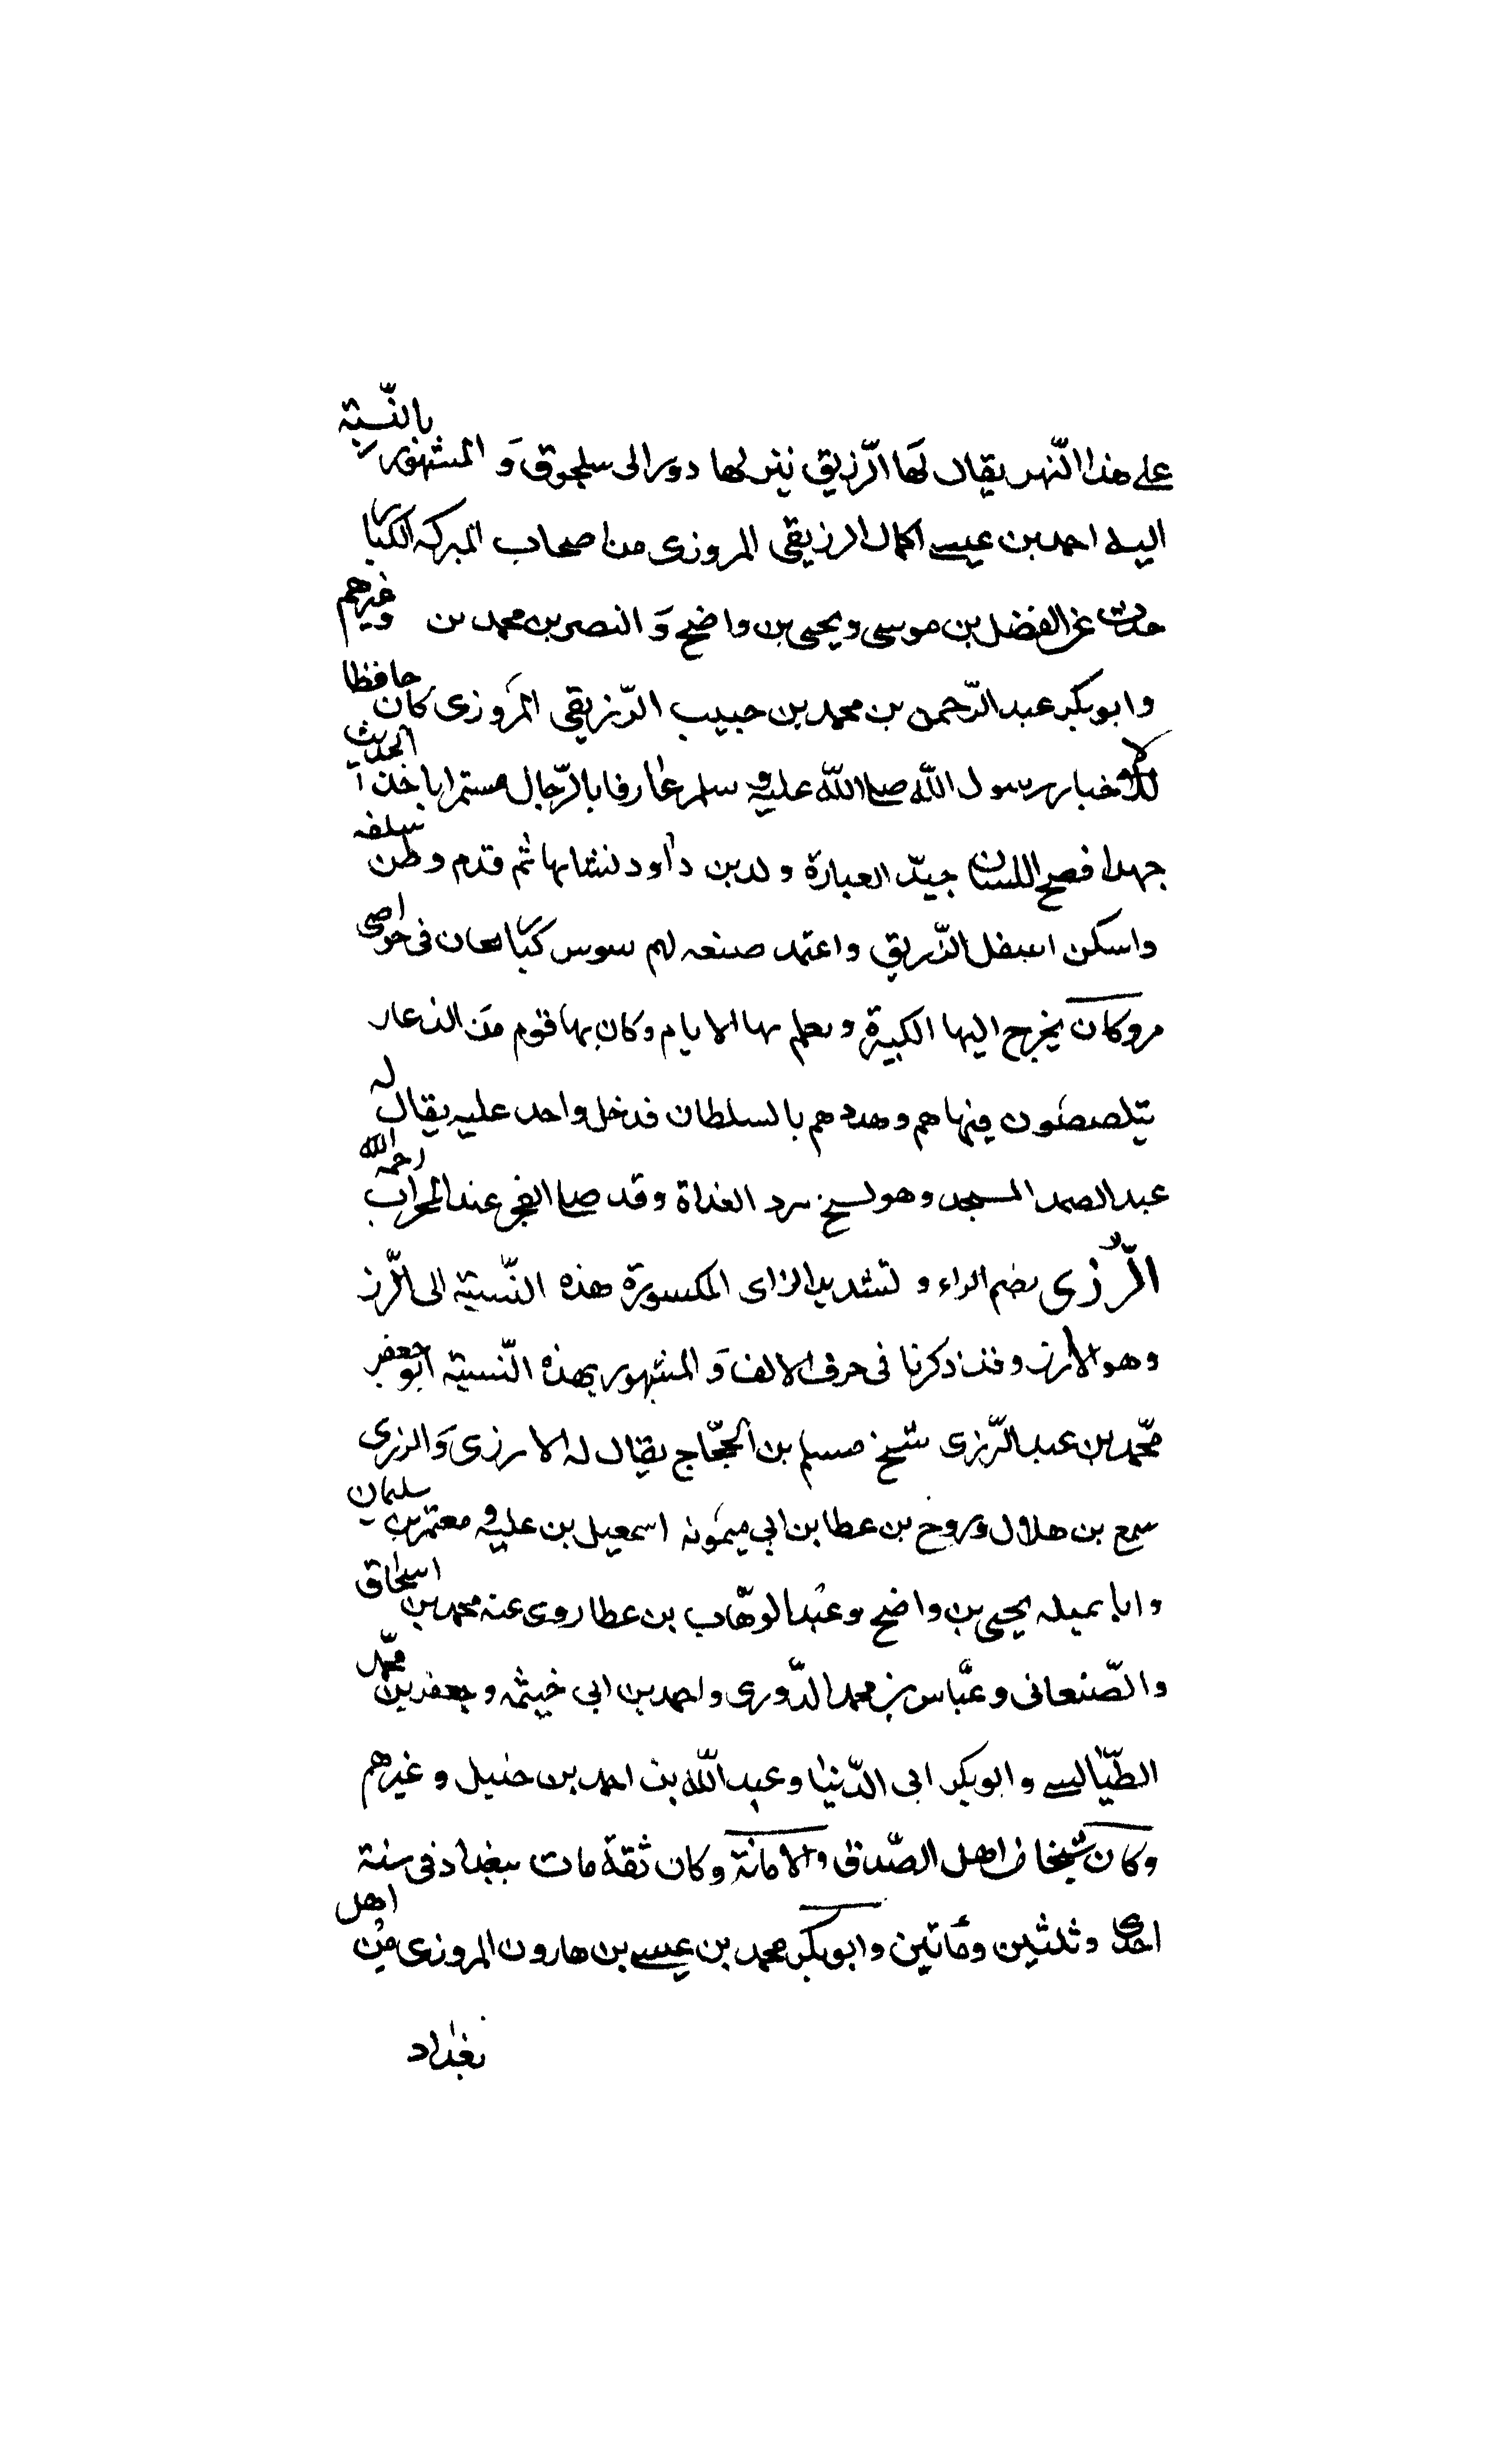 على هذا النّهر يقال لَها الرّزيق ينزلها دور الى سلجوق وَ المشهور بالنّسبة
اليه احمد بن عيسى اكمال الرزيقى المروزى من اصحاب المبركه الكبار
حدث عن الفضل بن موسى ويحيى بن واضح وَ النصر بن محمد بن وغيرهم
وابوبكر عبد الرّحمن بن محمد بن حبيب الرّزيقى المَروزى كان حافظا
للاخبار رسول اللّه صلى اللّه عليه و سلم عارفا بالرّجال مستمرا باخذ الحديث
جهدا فصيح اللسان جيّد العبارة ولد بن داود نشا بها ثم قدم وطن سلفه
واسكن اسفل الرّزيق واعتمد صنعه لهم سوس كبار كان فى حواصى
مرو كان يخرج اليها الكبيرة ويعلم بها الايام وكان بها قوم من الذعار
يتلصصون فيها هم وهددهم بالسلطان فدخل واحد عليه يقال له
عبد الصمد المسجد وهو يسبح برد الغداة وقد صلى الفجر عند المحراب رحمه الله
الرُّزى بضم الراء و تشديد الزاى المكسورة هذه النّسبة الى الرّز
وهو الارز وقد ذكرنا فى حرف الالف وَ المشهور بهذه النّسبة ابو جعفر
محّمد بن عبد الرّزى شيخ مسلم بن الحجّاج يقال له الارزى وَ الرزى
سمع بن هلال وروح بن عطا بن ابى ميمونه اسمعيل بن عليه و معتمر بن سليمان
وابا تميله يحيى بن واضح وعبْد الوهّاب بن عطا روى عنه محمد بن اسحاق
والصّنعانى وعبّاس بن محمد الدّورى واحمد بن ابى خيثمه وجعفر بن محمّد
الطّيالسى وابوبكر ابى الدّنيا وعبد اللّه بن احمد بن حنبل وغيرهم
وكان شيخا من اهل الصّدق والامانة وكان ثقة مات ببغداد فى سنة
احدى وثلثين ومأتين وابوبكر محمد بن عيسى بن هارون المروزى من اهل
بغداد